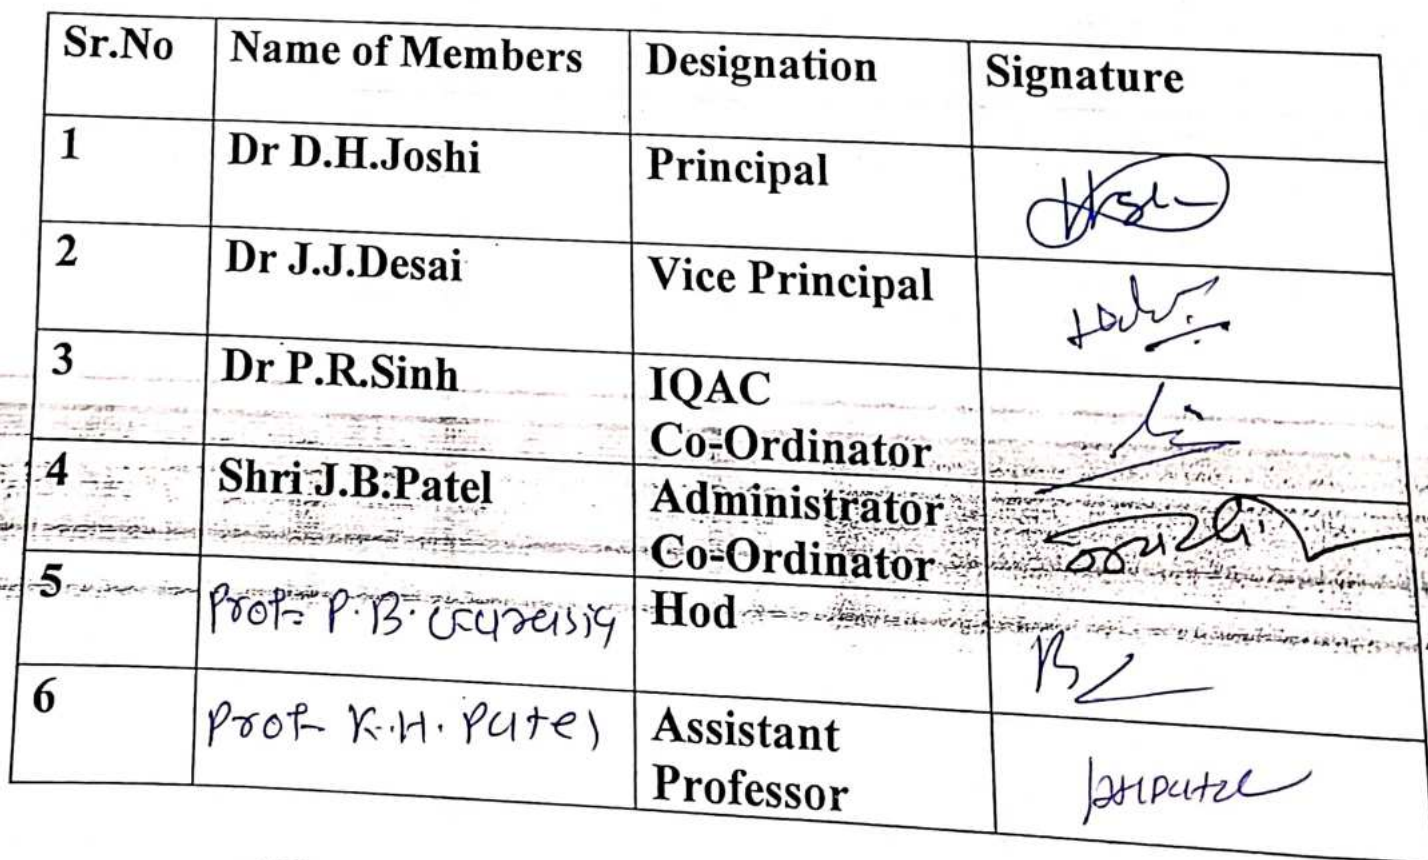 Sr.No Name of Members Designation Signature
1 Dr D.H.Joshi Principal
2 Dr J.J.Desai Vice Principal
3 Dr P.R.Sinh IQAC
Co-Ordinator
4 Shri J.B.Patel Administrator
Co-Ordinator
5 Prof. P.B. Hod
6 Prof. K.H. Patel Assistant
Professor